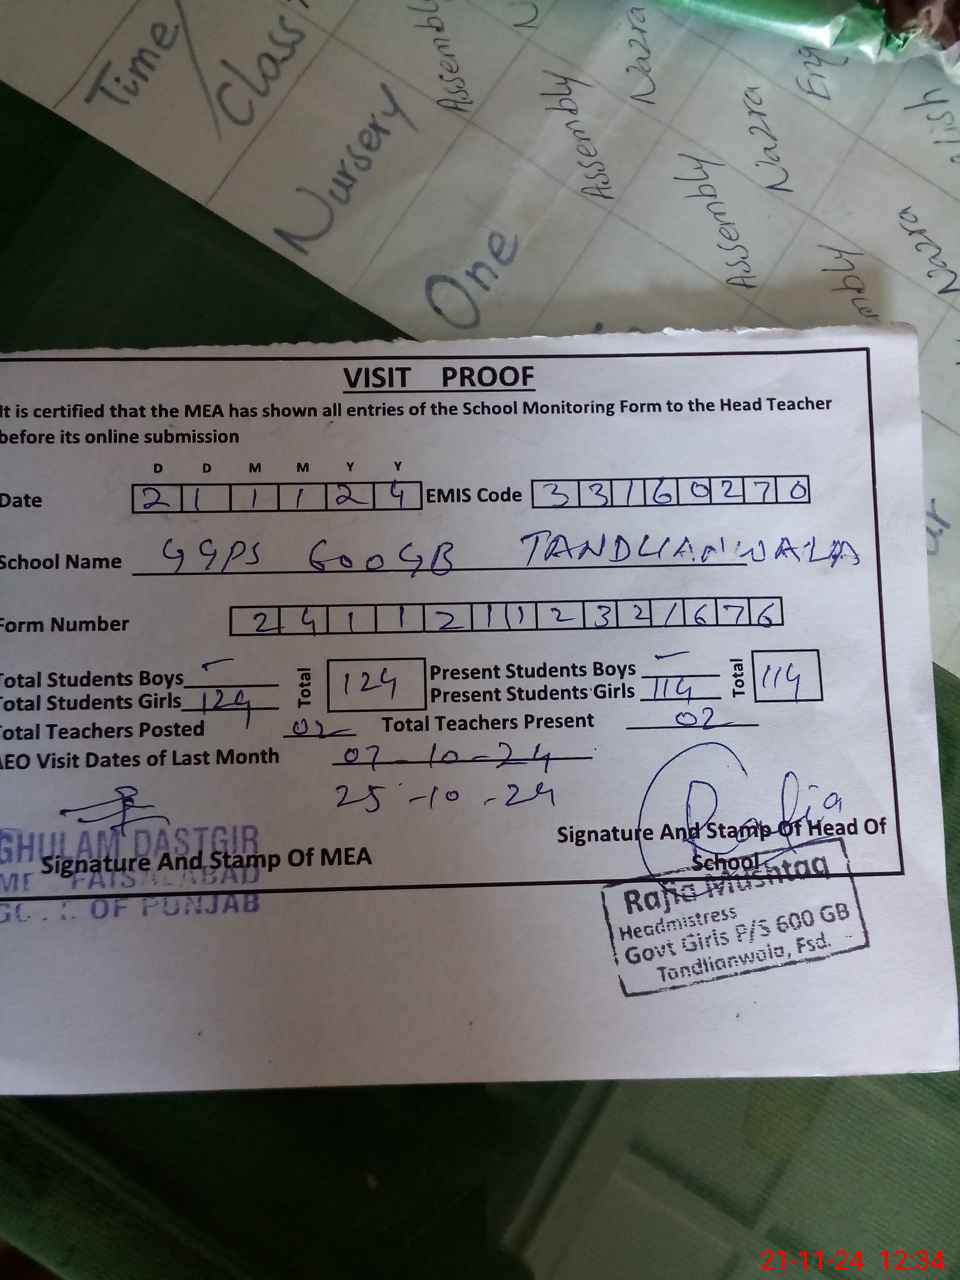 Time
Class
Nursery
Assembly
One
Assembly
Nazra
Assembly
Nazra
Eng
Nazra
VISIT PROOF
It is certified that the MEA has shown all entries of the School Monitoring Form to the Head Teacher
before its online submission
D D M M Y Y
Date 2 1 1 1 2 4 EMIS Code 3 3 1 6 0 2 7 0
School Name GGPS 600GB TANDLIANWALA
Form Number 2 4 1 1 2 1 1 2 3 2 1 6 7 6
Total Students Boys - Total 124 Present Students Boys - Total 114
Total Students Girls 124 Present Students Girls 114
Total Teachers Posted 02 Total Teachers Present 02
AEO Visit Dates of Last Month 07-10-24
25-10-24
Rafia
Signature And Stamp Of Head Of
School
GHULAM DASTGIR
Signature And Stamp Of MEA
FAISALABAD
OF PUNJAB
Rafia Mushtaq
Headmistress
Govt Girls P/S 600 GB
Tandlianwala, Fsd.
21-11-24 12:34